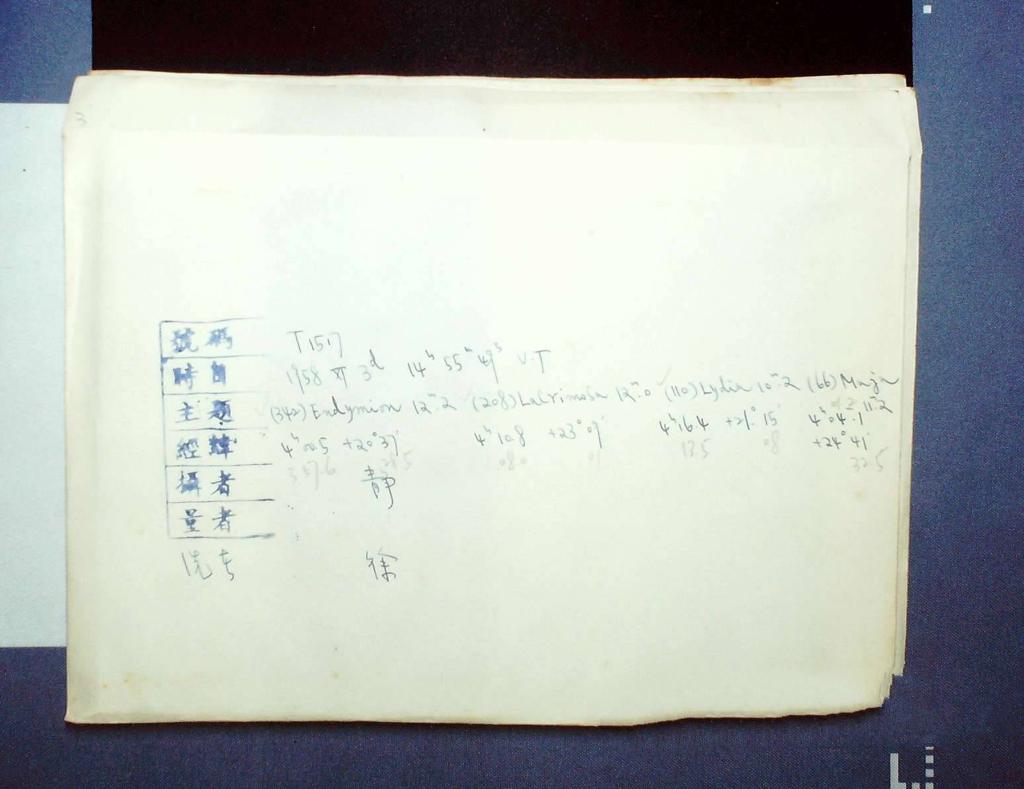 3
號碼 T1517
時日 1958 XI 3d 14h 55m 49s U.T
主題 (342) Endymion 12m.2 (208) Lacrimosa 12m.0 (110) Lydia 10m.2 (66) Maja 11m.2
經緯 4h00.5 +20°37' 4h10.8 +23°09' 4h16.4 +21°15' 4h04.1 +24°41'
357.6 28.5 08.0 09 13.5 08 32.5
攝者 静
量者
洗去 徐